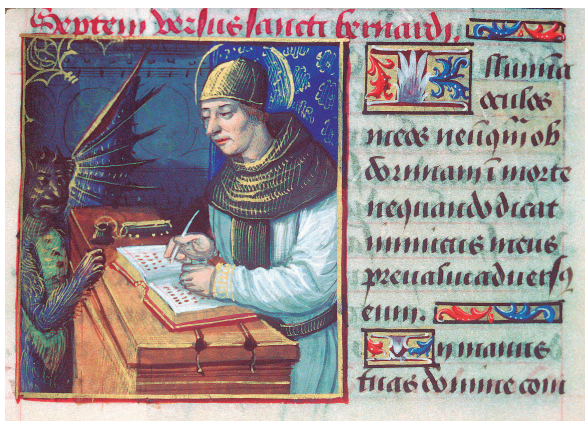 Septem versus sancti bernardi.
Illumīa
oculos
meos ne ūq̄m ob
dormiam ī morte
nequando dicat
inimicus meus
preualui aduersꝰ
eum.
In manus
tuas domine com